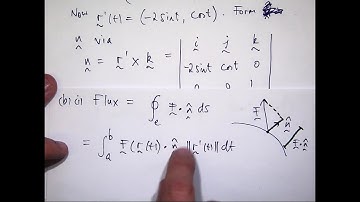 Now r'(t) = (-2sint, cost). Form
n via
n = r' × k = | i j k
-2sint cost 0
0 0 1 |
(b) (i) Flux = ∮_e F · n̂ ds
= ∫_a^b F(r(t)) · n̂ ‖r'(t)‖ dt
F
n̂
F · n̂